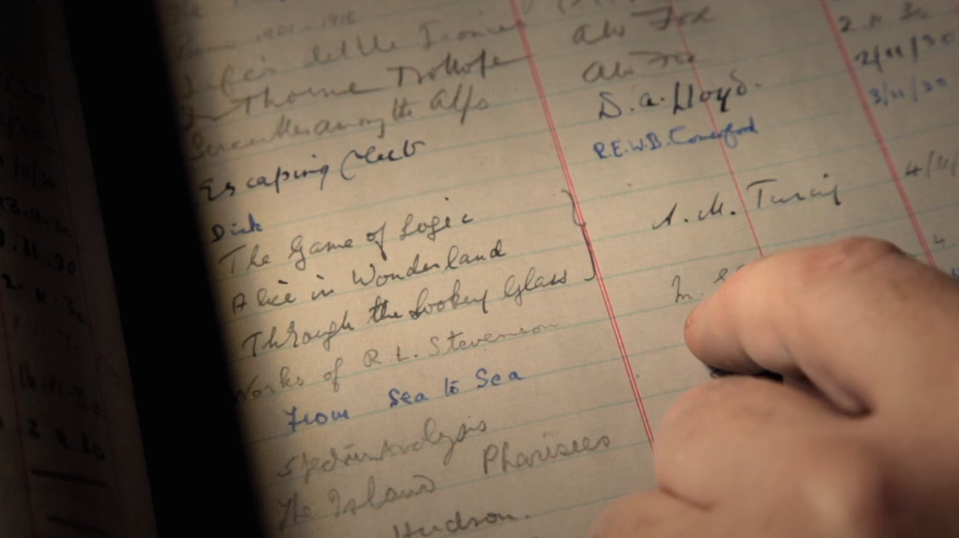 1901-1910
Life's little Ironies Alex Fox 2 11 30
Dr Thorne Trollope Alex Fox 2/11/30
Scrambles among the Alps D. A. Lloyd. 3/11/30
Escaping Club R.E.W.B. Comerford
Dick
The Game of Logic A. M. Turing 4/11/
Alice in Wonderland 4
Through the Looking Glass M.
Works of R L. Stevenson
From Sea to Sea
Spectrum Analysis
The Island Pharisees
Hudson.